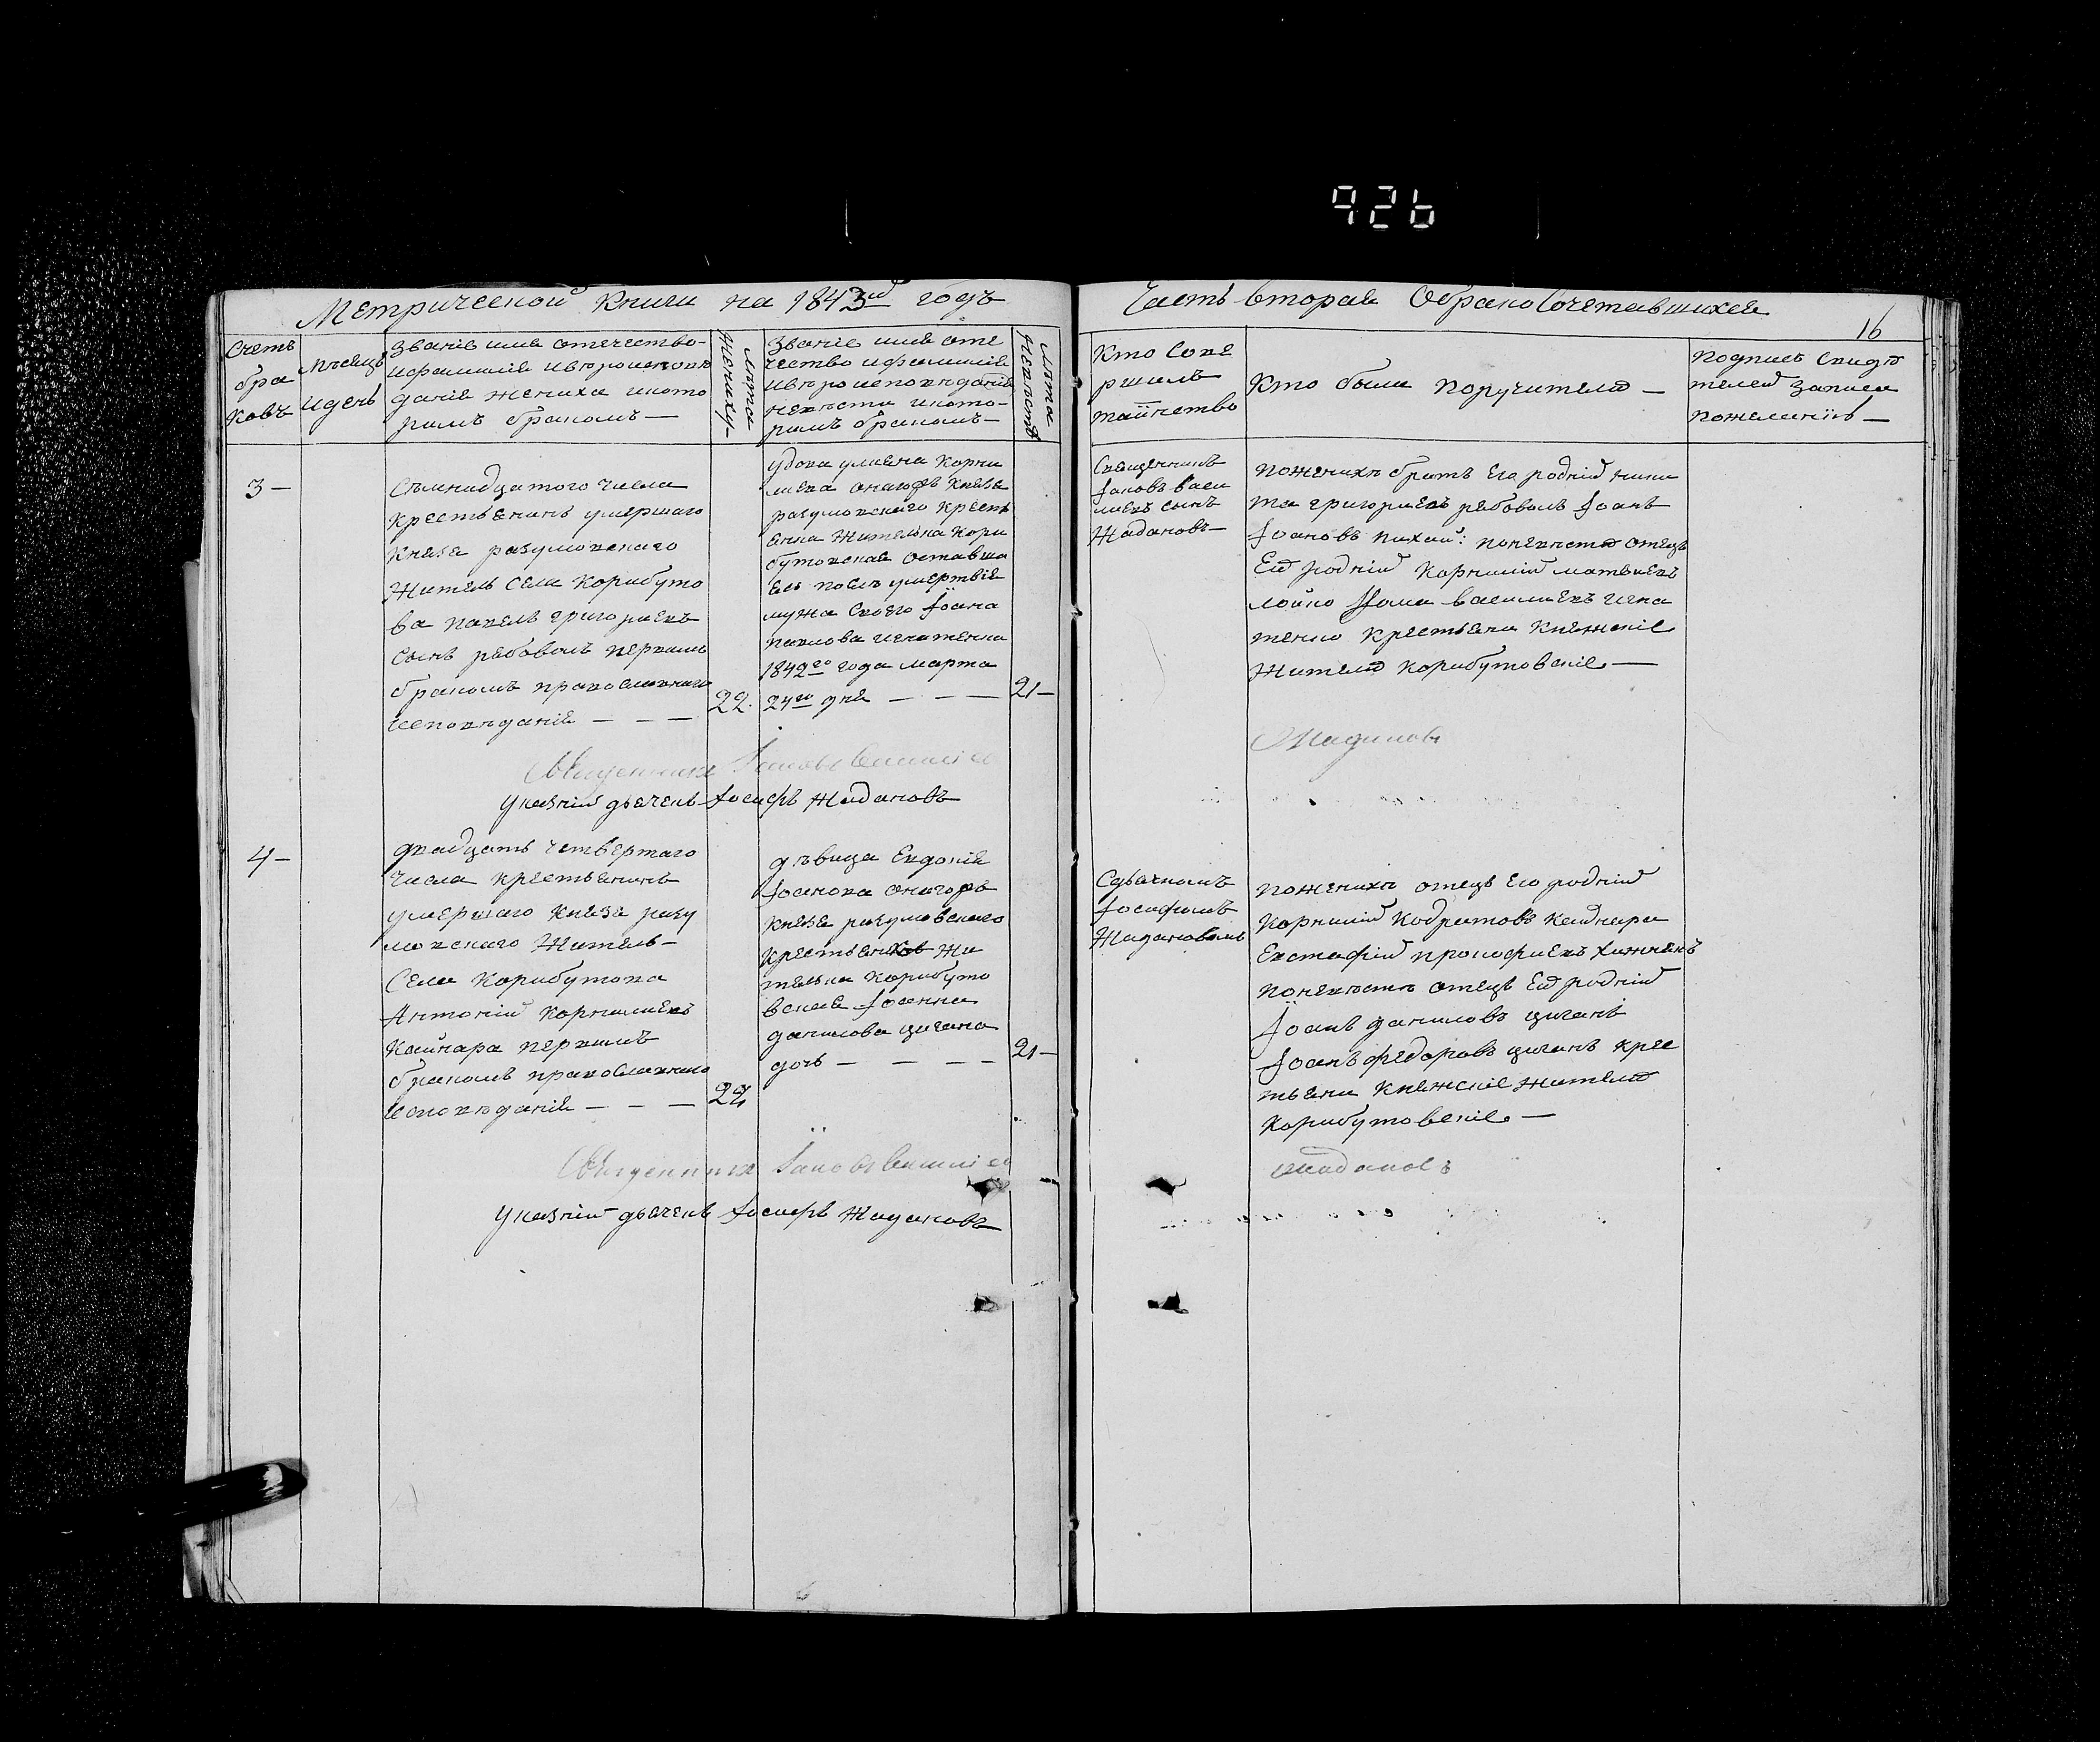 926
Метрической книги на 1843й годъ
Часть вторая Обрако Сочетавшихся
16
Счетъ
бра
ковъ
Мѣсяцъ
идень
Званіе имя отечество
ифамилія ивѣроисповѣ
даніе жениха икото
римъ бракомъ —
Лѣта
Жениху —
Званіе имя оте
чество ифамилія
ивѣроисповѣданія
невѣсти икото-
римъ бракомъ —
Лѣта
Невѣстѣ
Кто Сове
ршилъ
таинство
Кто были поручители —
подписъ Свидѣ
телей записи
пожеланію —
3 —
Сѣмнадцатого числа
крестьянинъ умершаго
князя разумовскаго
Житель Села Корибуто
ва павелъ григориевъ
Сынъ рабоволъ первимъ
бракомъ православнаго
исповѣданія — — —
22.
удова улияна Корни
лиева онагожъ князя
разумовскаго крестя
анка Жителька Кори
бутовская Оставша
яся послѣ умертвія
мужа Своего Іоана
павлова игнатенка
1842го года марта
24го дня — — —
21 —
Священникъ
Іаковъ Васи
лиевъ Сынъ
Жадановъ —
пожениху братъ Его родній ники
та григориевъ рабоволъ Іоанъ
Іоановъ пихай: поневисти отецъ
Ей родній Корнилій матвиевъ
лойко Фома василиевъ игна
тенко крестьяни княжскіе
Жители Корибутовскіе —
Священникъ Іаковъ Василіев
Жадановъ
указній дьячекъ Іосифъ Жадановъ
4 —
двадцать четвертаго
числа крестьянинъ
умершаго князя разу
мовскаго Житель —
Села Корибутова
Антоній Корнилиевъ
Кашкара первимъ
бракомъ православнаго
исповѣданія — — —
24
дѣвица Евдокія
Іоанова онагожъ
князя разумовскаго
крестьянков Жи
телька Корибуто
вская Іоанна
данилова цигана
дочь — — — —
21 —
Сдьячкомъ
Іосифомъ
Жадановомъ
пожениху отецъ Его родній
Корнилій Кодратовъ Кашкара
Евстафій прокофиевъ
поневисти отецъ Ей родній
Іоанъ даниловъ циганъ
Іоанъ федоровъ циганъ крес
тьяни княжскіе жители
Корибутовскіе —
Священникъ Іаковъ Василіев
Жадановъ
указній дьячекъ Іосифъ Жадановъ